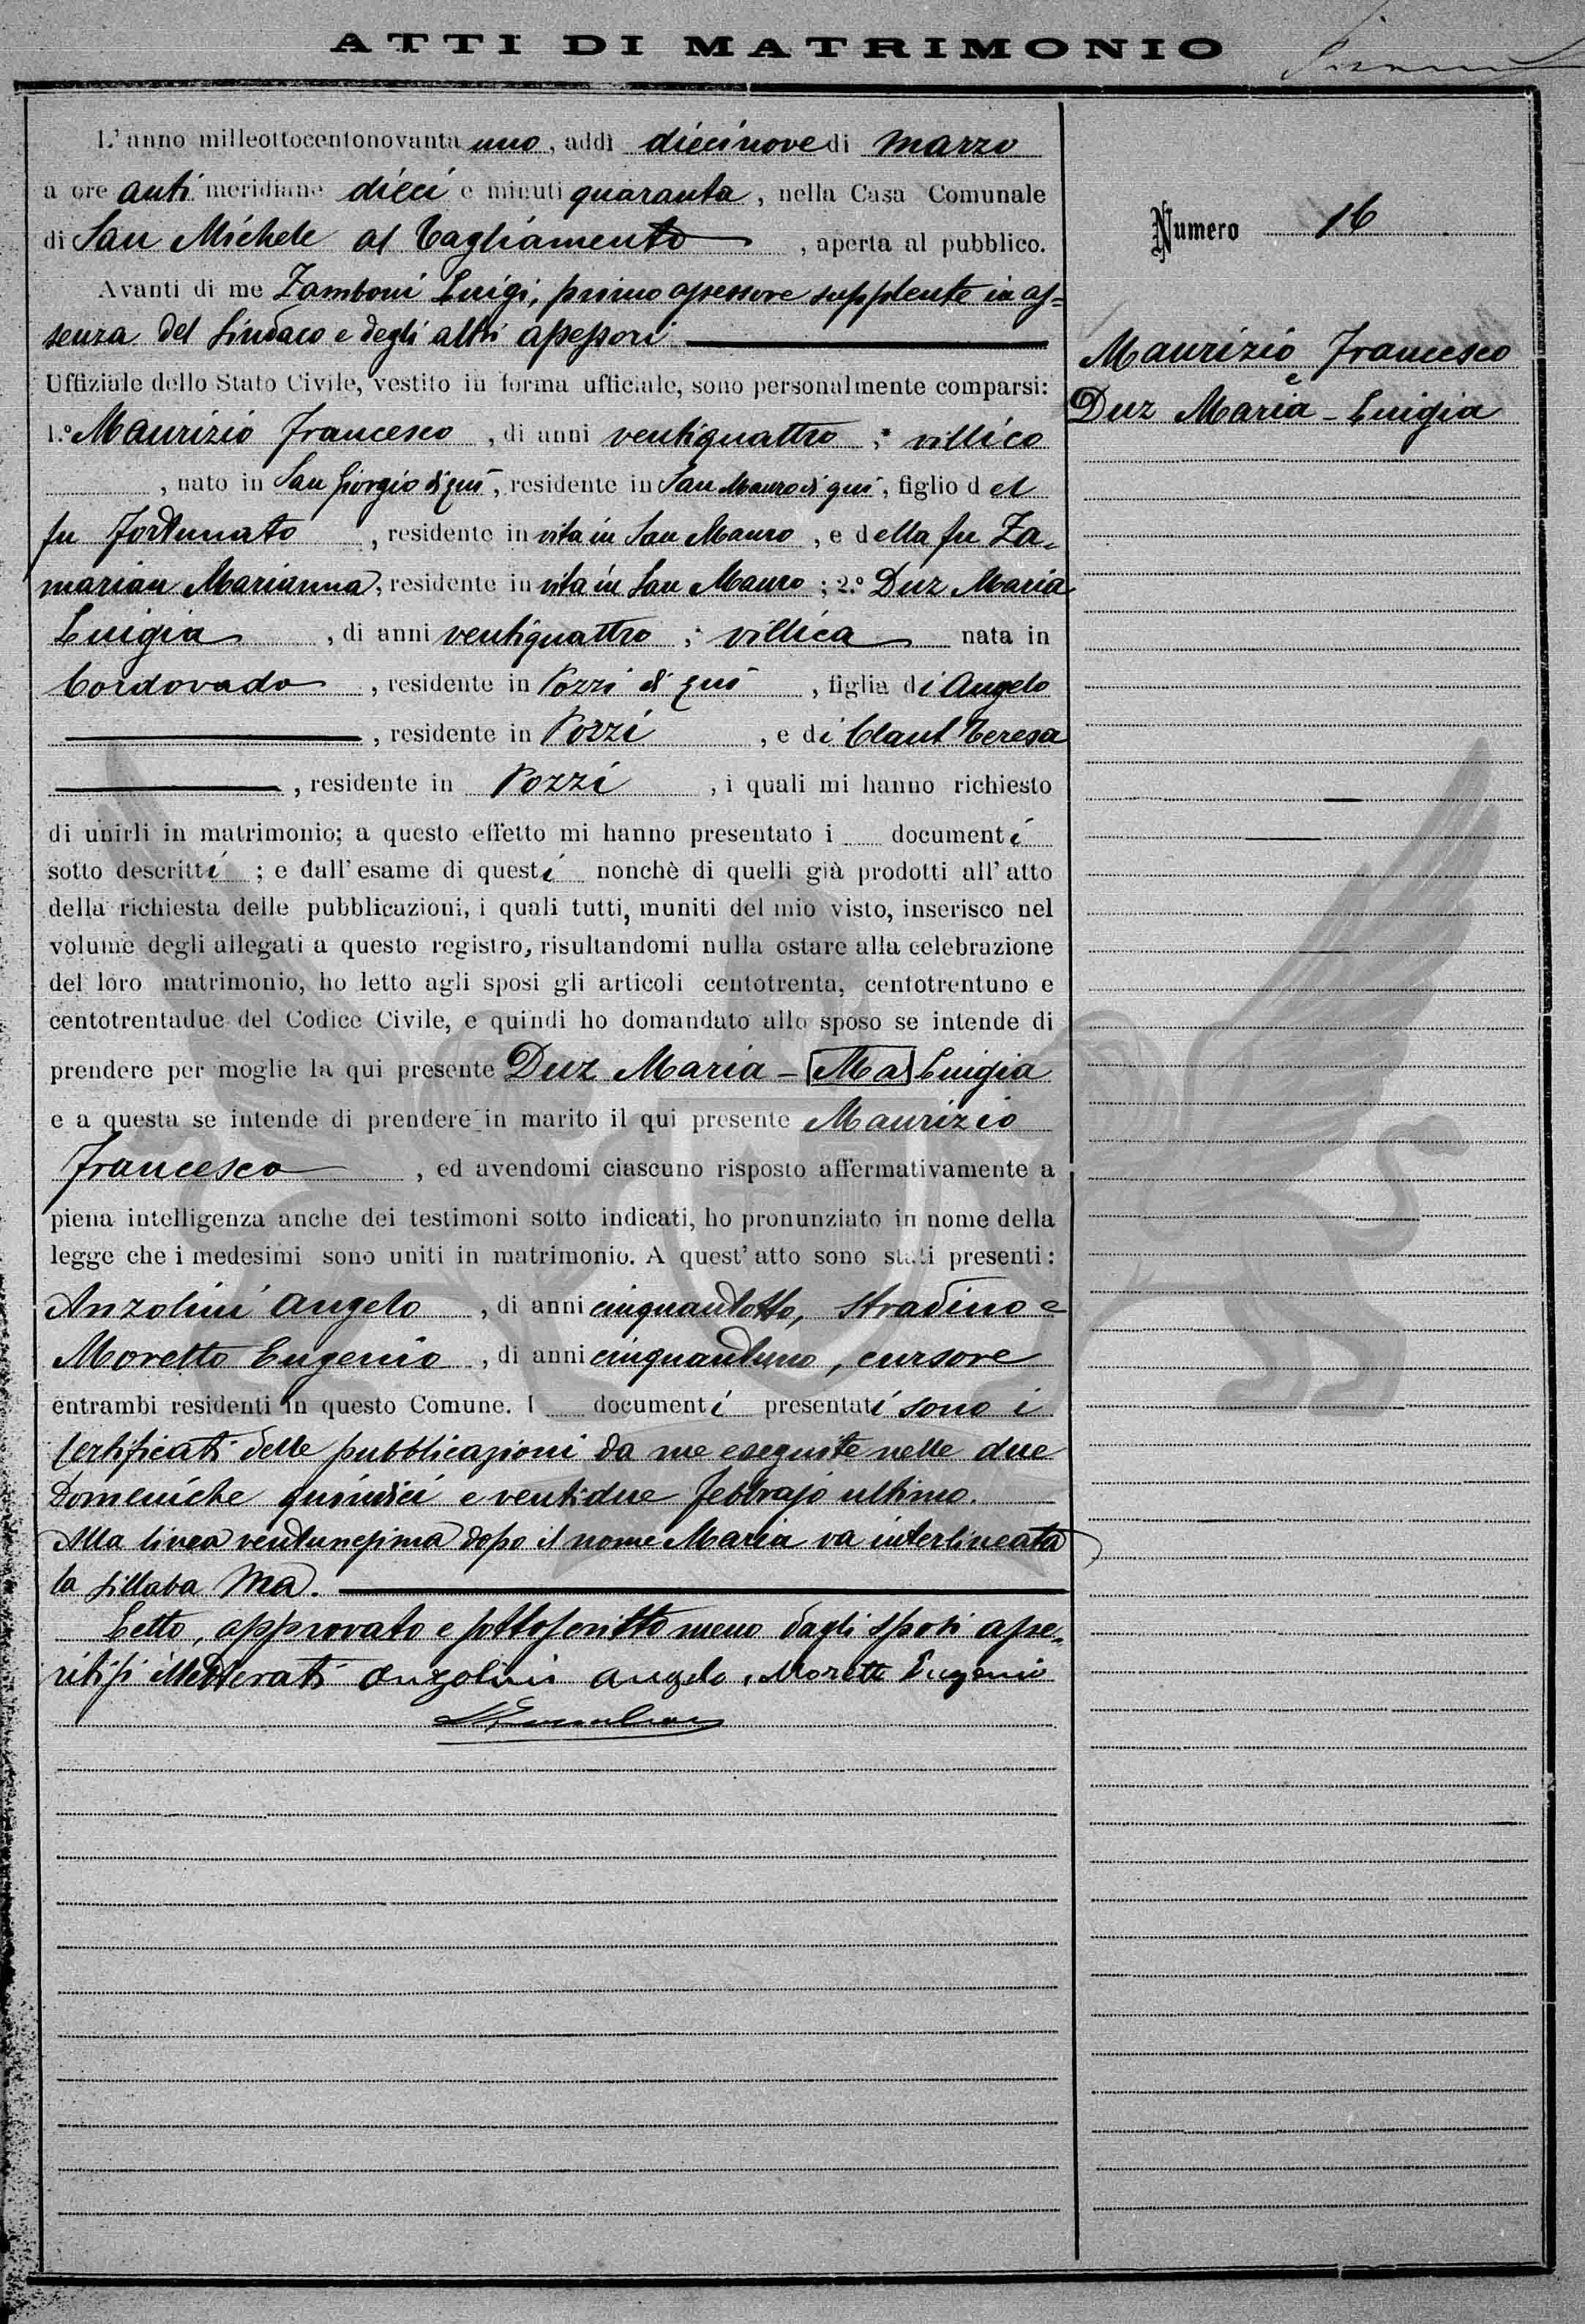 ATTI DI MATRIMONIO
L'anno milleottocentonovanta uno, addì diecinove di marzo
a ore anti meridiane dieci e minuti quaranta, nella Casa Comunale
di San Michele al Tagliamento, aperta al pubblico.
Avanti di me Zamboni Luigi, primo assessore supplente in as=
senza del Sindaco e degli altri assessori
Uffiziale dello Stato Civile, vestito in forma ufficiale, sono personalmente comparsi:
1.º Maurizio Francesco, di anni ventiquattro, villico
, nato in San Giorgio di qui, residente in San Mauro di qui, figlio del
fu Fortunato, residente in vita in San Mauro, e della fu Za=
marian Marianna, residente in vita in San Mauro; 2.º Duz Maria
Luigia, di anni ventiquattro, villica nata in
Cordovado, residente in Pozzi di qui, figlia di Angelo
, residente in Pozzi, e di Claut Teresa
, residente in Pozzi, i quali mi hanno richiesto
di unirli in matrimonio; a questo effetto mi hanno presentato i documenti
sotto descritti; e dall'esame di questi nonchè di quelli già prodotti all'atto
della richiesta delle pubblicazioni, i quali tutti, muniti del mio visto, inserisco nel
volume degli allegati a questo registro, risultandomi nulla ostare alla celebrazione
del loro matrimonio, ho letto agli sposi gli articoli centotrenta, centotrentuno e
centotrentadue del Codice Civile, e quindi ho domandato allo sposo se intende di
prendere per moglie la qui presente Duz Maria - Ma Luigia
e a questa se intende di prendere in marito il qui presente Maurizio
Francesco, ed avendomi ciascuno risposto affermativamente a
piena intelligenza anche dei testimoni sotto indicati, ho pronunziato in nome della
legge che i medesimi sono uniti in matrimonio. A quest'atto sono stati presenti:
Anzolini Angelo, di anni cinquantotto, stradino e
Moretto Eugenio, di anni cinquantuno, cursore
entrambi residenti in questo Comune. I documenti presentati sono i
certificati delle pubblicazioni da me eseguite nelle due
Domeniche quindici e ventidue Febbrajo ultimo.
Alla linea ventunesima dopo il nome Maria va interlineata
la sillaba Ma.
Letto, approvato e sottoscritto meno dagli sposi asse=
ritisi illetterati Anzolini Angelo, Moretto Eugenio
Numero 16
Maurizio Francesco
e
Duz Maria - Luigia